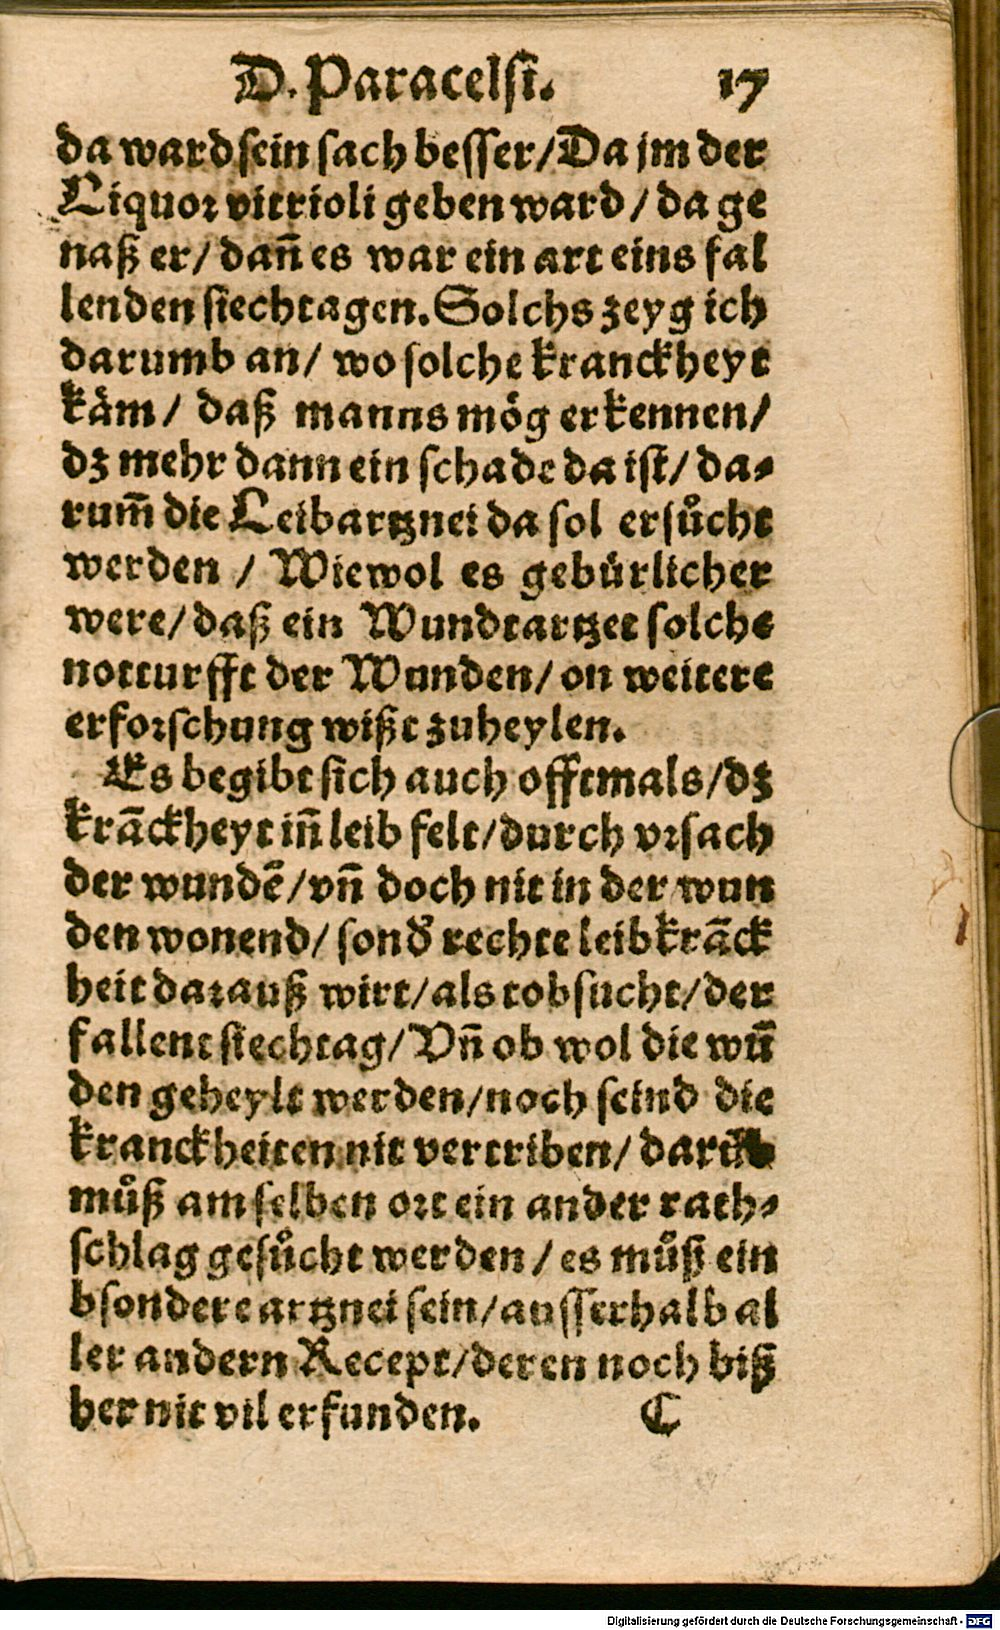 D. Paracelsi. 17
da ward sein sach besser/Da jm der
Liquoꝛ vitrioli geben ward / da ge
naß er/ dañ es war ein art eins fal
lenden siechtagen. Solchs zeyg ich
darumb an/ wo solche kranckheyt
kåm/ daß manns mög erkennen/
dz mehr dann ein schade da ist/ da⸗
rum̃ die Leibartznei da sol ersůcht
werden / Wiewol es gebürlicher
were/ daß ein Wundtartzet solche
notturfft der Wunden/ on weitere
erfoꝛschung wißt zuheylen.
Es begibt sich auch offtmals/dz
krāckheyt iñ leib felt/durch vꝛsach
der wundē/vñ doch nit in der wun
den wonend/ sond̕ rechte leibkrāck
heit daꝛauß wirt/als tobsucht/der
fallent siechtag/ Vñ ob wol die wũ
den geheylt werden/noch seind die
kranckheiten nit vertriben/ darũb
můß am selben oꝛt ein ander rath⸗
schlag gesůcht werden / es můß ein
bsondere artznei sein/ausserhalb al
ler andern Recept/deren noch biß
her nit vil erfunden. C
Digitalisierung gefördert durch die Deutsche Forschungsgemeinschaft - DFG